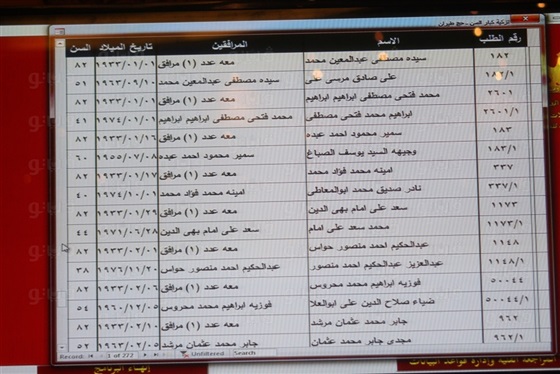 تزكية كبار السن - حج طيران
رقم الطلب الاسم المرافقين تاريخ الميلاد السن
١٨٢ سيده مصطفى عبدالمعين محمد معه عدد (١) مرافق ١٩٣٣/٠١/٠١ ٨٢
١٨٢/١ على صادق مرسى على سيده مصطفى عبدالمعين محمد ١٩٦٣/٠٩/١٠ ٥١
٢٦٠١ محمد فتحى مصطفى ابراهيم ابراهيم معه عدد (١) مرافق ١٩٣٣/٠١/٠١ ٨٢
٢٦٠١/١ ابراهيم محمد فتحى مصطفى محمد فتحى مصطفى ابراهيم ابراهيم ١٩٧٤/٠١/٠١ ٤١
١٨٣ سمير محمود احمد عبده معه عدد (١) مرافق ١٩٣٣/٠١/١٦ ٨٢
١٨٣/١ وجيهه السيد يوسف الصباغ سمير محمود احمد عبده ١٩٥٥/٠٧/٠٨ ٦٠
٣٣٧ امينه محمد فؤاد محمد معه عدد (١) مرافق ١٩٣٣/٠١/١٧ ٨٢
٣٣٧/١ نادر صديق محمد ابوالمعاطى امينه محمد فؤاد محمد ١٩٧٤/١٠/٠١ ٤٠
١١٧٣ سعد على امام بهى الدين معه عدد (١) مرافق ١٩٣٣/٠١/٢٩ ٨٢
١١٧٣/١ محمد سعد على امام سعد على امام بهى الدين ١٩٧١/٠٦/٢٨ ٤٤
١١٤٨ عبدالحكيم احمد منصور حواس معه عدد (١) مرافق ١٩٣٣/٠٢/٠١ ٨٢
١١٤٨/١ عبدالعزيز عبدالحكيم احمد منصور عبدالحكيم احمد منصور حواس ١٩٧٦/١١/٢٠ ٣٨
٥٠٠٤٤ فوزيه ابراهيم محمد محروس معه عدد (١) مرافق ١٩٣٣/٠٢/٠٦ ٨٢
٥٠٠٤٤/١ ضياء صلاح الدين على ابوالعلا فوزيه ابراهيم محمد محروس ١٩٦٠/١٢/٠٥ ٥٤
٩٦٢ جابر محمد عثمان مرشد معه عدد (١) مرافق ١٩٣٣/٠٢/١٠ ٨٢
٩٦٢/١ مجدى جابر محمد عثمان جابر محمد عثمان مرشد ١٩٦٣/٠٢/٠٥ ٥٢
Record: 1 of 272 Unfiltered Search
وإدارة قواعد البيانات إنهاء البرنامج